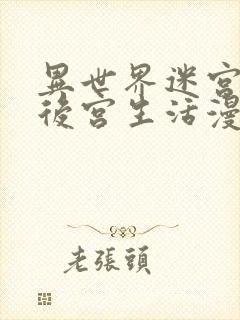 異世界迷宮
後宮生活漫
老張頭